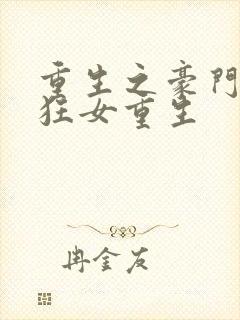 重生之豪門
狂女重生
冉金友